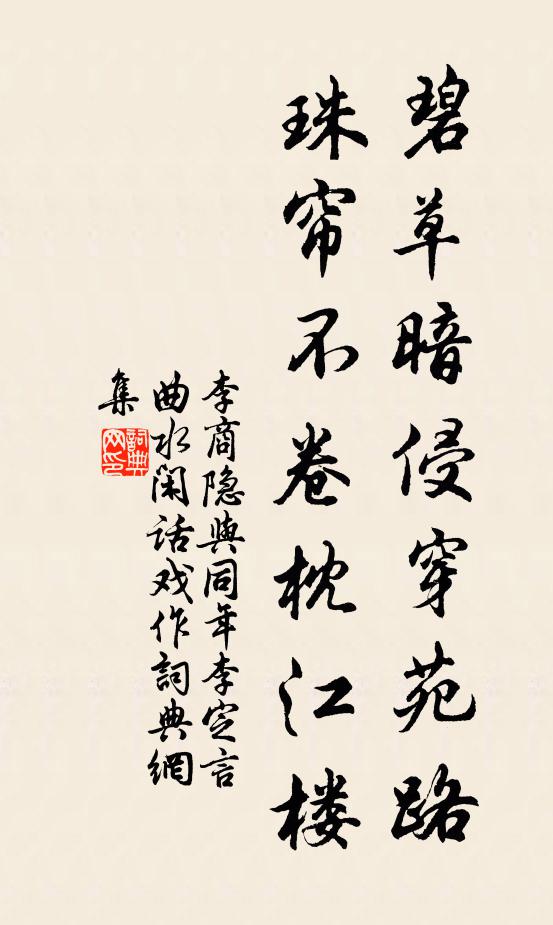 碧草暗侵穿苑路
珠帘不卷枕江楼
李商隐與同年李定言
曲水闲话戏作詞典網
集
詞典
网印